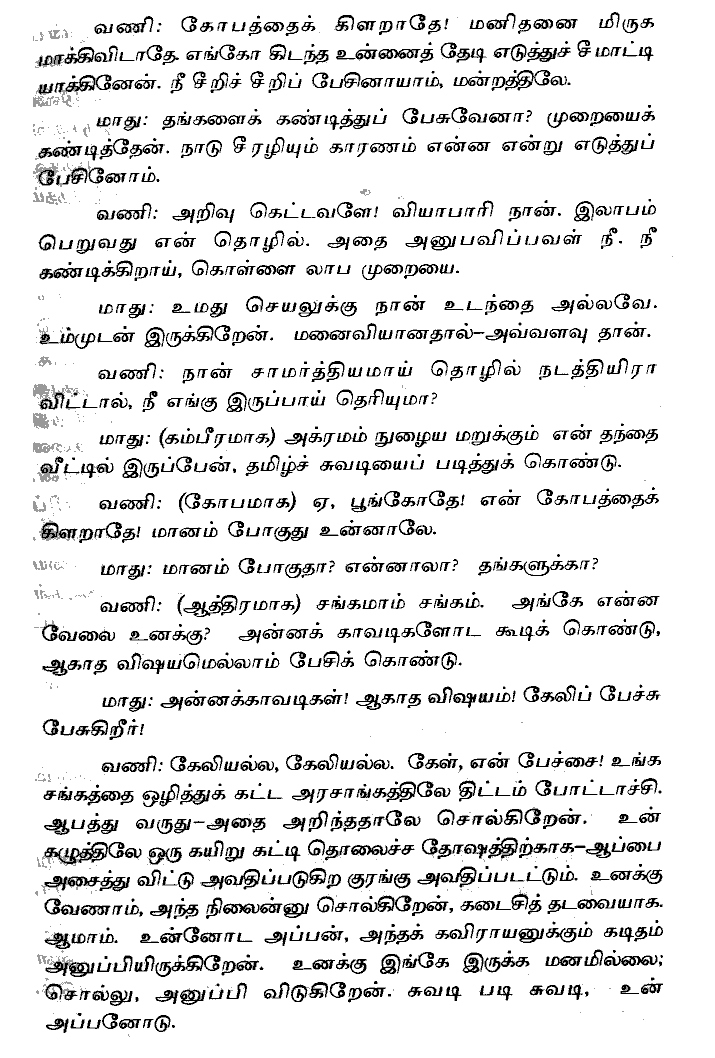 வணி: கோபத்தைக் கிளறாதே! மனிதனை மிருக
மாக்கிவிடாதே. எங்கோ கிடந்த உன்னைத் தேடி எடுத்துச் சீமாட்டி
யாக்கினேன். நீ சீறிச் சீறிப் பேசினாயாம், மன்றத்திலே.
மாது: தங்களைக் கண்டித்துப் பேசுவேனா? முறையைக்
கண்டித்தேன். நாடு சீரழியும் காரணம் என்ன என்று எடுத்துப்
பேசினோம்.
வணி: அறிவு கெட்டவளே! வியாபாரி நான். இலாபம்
பெறுவது என் தொழில். அதை அனுபவிப்பவள் நீ. நீ
கண்டிக்கிறாய், கொள்ளை லாப முறையை.
மாது: உமது செயலுக்கு நான் உடந்தை அல்லவே.
உம்முடன் இருக்கிறேன். மனைவியானதால்—அவ்வளவு தான்.
வணி: நான் சாமர்த்தியமாய் தொழில் நடத்தியிரா
விட்டால், நீ எங்கு இருப்பாய் தெரியுமா?
மாது: (கம்பீரமாக) அக்ரமம் நுழைய மறுக்கும் என் தந்தை
வீட்டில் இருப்பேன், தமிழ்ச் சுவடியைப் படித்துக் கொண்டு.
வணி: (கோபமாக) ஏ, பூங்கோதே! என் கோபத்தைக்
கிளறாதே! மானம் போகுது உன்னாலே.
மாது: மானம் போகுதா? என்னாலா? தங்களுக்கா?
வணி: (ஆத்திரமாக) சங்கமாம் சங்கம். அங்கே என்ன
வேலை உனக்கு? அன்னக் காவடிகளோட கூடிக் கொண்டு,
ஆகாத விஷயமெல்லாம் பேசிக் கொண்டு.
மாது: அன்னக்காவடிகள்! ஆகாத விஷயம்! கேலிப் பேச்சு
பேசுகிறீர்!
வணி: கேலியல்ல, கேலியல்ல. கேள், என் பேச்சை! உங்க
சங்கத்தை ஒழித்துக் கட்ட அரசாங்கத்திலே திட்டம் போட்டாச்சி.
ஆபத்து வருது—அதை அறிந்ததாலே சொல்கிறேன். உன்
கழுத்திலே ஒரு கயிறு கட்டி தொலைச்ச தோஷத்திற்காக—ஆப்பை
அசைத்து விட்டு அவதிப்படுகிற குரங்கு அவதிப்படட்டும். உனக்கு
வேணாம், அந்த நிலைன்னு சொல்கிறேன், கடைசித் தடவையாக.
ஆமாம். உன்னோட அப்பன், அந்தக் கவிராயனுக்கும் கடிதம்
அனுப்பியிருக்கிறேன். உனக்கு இங்கே இருக்க மனமில்லை;
சொல்லு, அனுப்பி விடுகிறேன். சுவடி படி சுவடி, உன்
அப்பனோடு.